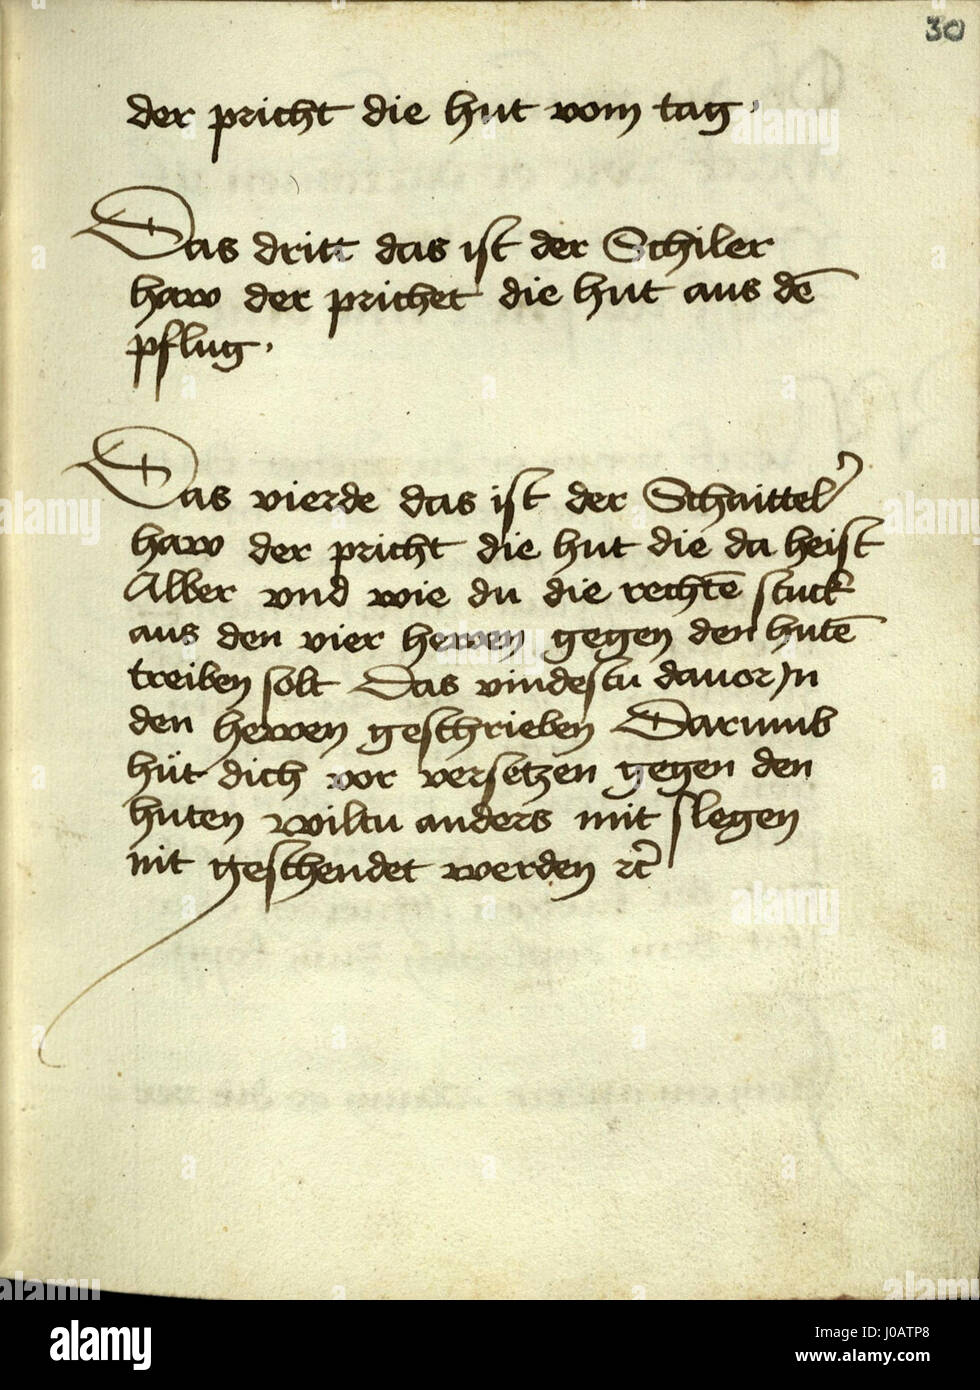 30
der pricht die hut vom tag.
Das dritt das ist der Schiler
haw der prichet die hut aus dē
pflug.
Das vierde das ist der Schaittel
haw der pricht die hut die da heist
Alber vnd wie du die rechtē stuck
aus den vier hewen gegen den hutē
treiben solt Das vindestu dauor jn
den hewen geschrieben Darumb
hüt dich vor versetzen gegen den
huten wiltu anders mit slegen
nit geschendet werden ꝛc̄
alamy
Image ID: J0ATP8
www.alamy.com